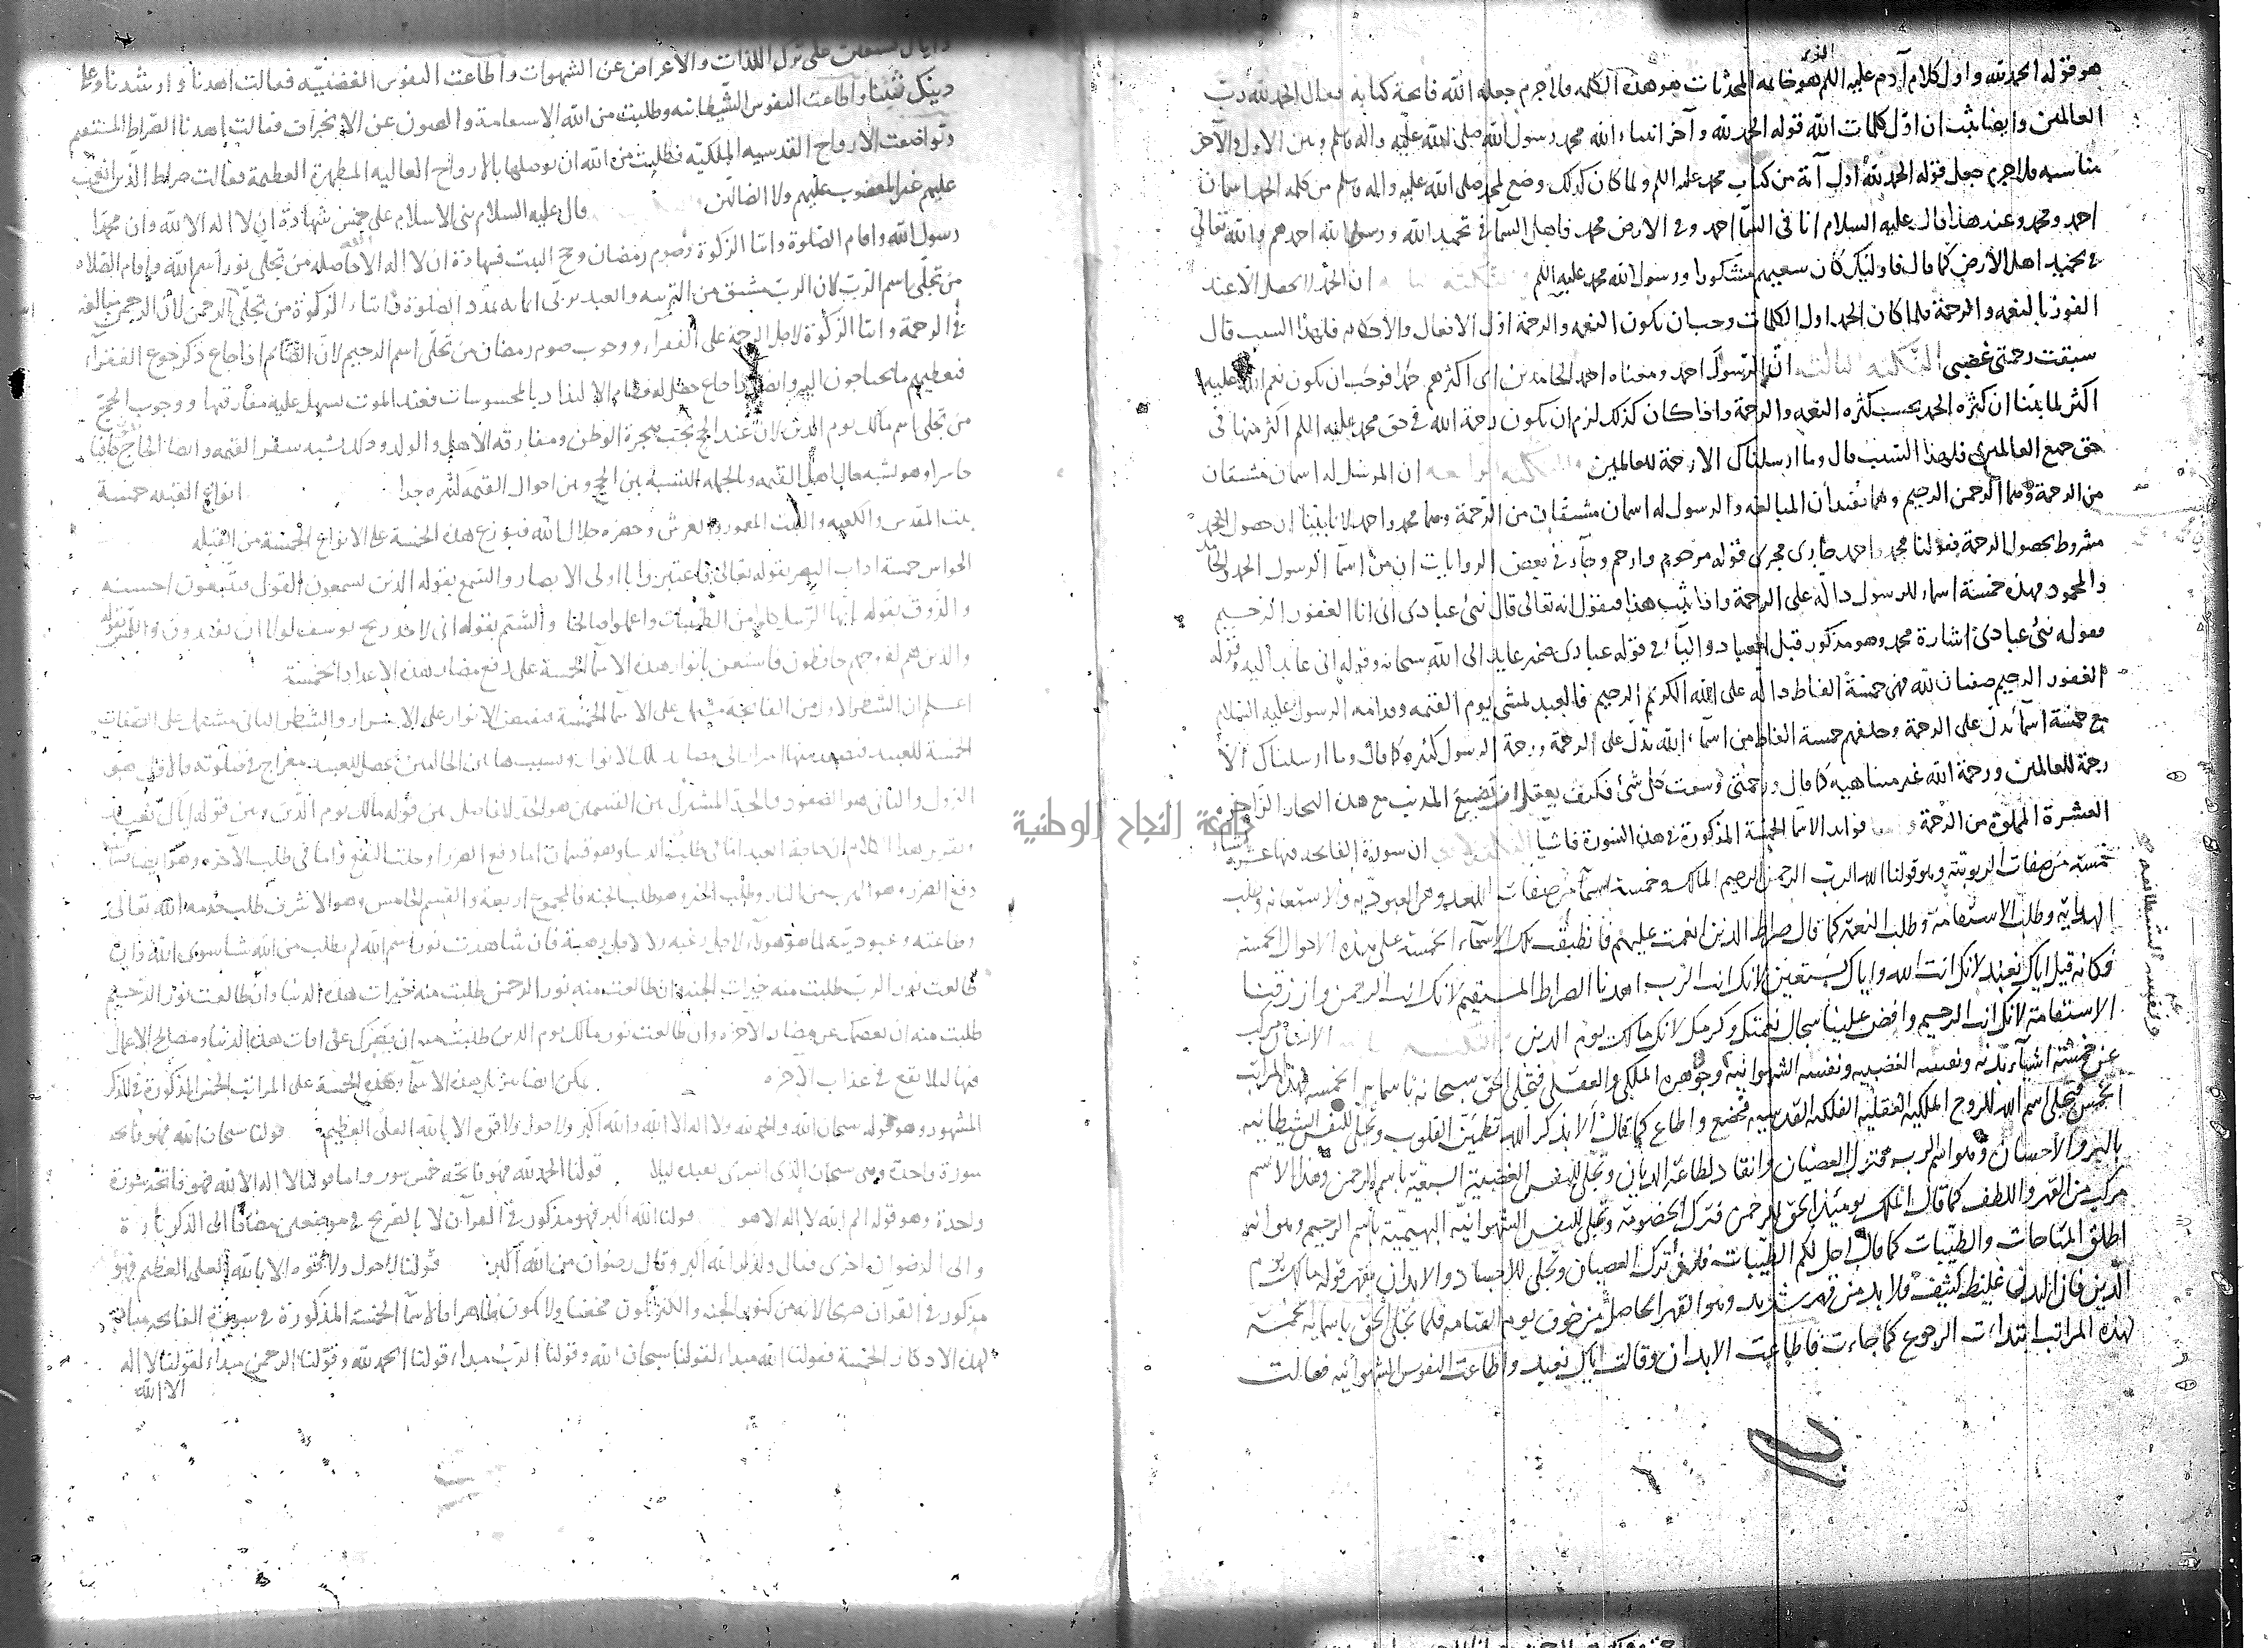 هو قوله الحمد لله واول كلام آدم عليه اللم هو خاتمه المحدثات هو هذه الكلمه فلا جرم جعله الله فاتحة كتابه فعال الحمد لله رب
العالمين وايضا ثبت ان اول كلمات الله قوله الحمد لله وآخر انبياء الله محمد رسول الله صلى الله عليه واله وسلم وبين الاول والآخر
مناسبه فلا جرم جعل قوله الحمد لله أول آية من كتاب محمد عليه اللم ولما كان كذلك وضع لمحمد صلى الله عليه واله وسلم من كلمه الحمد اسمان
احمد ومحمد وعند هذا قال عليه السلام انا في السما احمد وفى الارض محمد فاهل السما في تحميد الله ورسول الله احمدهم والله تعالى
في تحميد اهل الأرض كما قال فاولئك كان سعيهم مشكورا ورسول الله محمد عليه اللم النكته ان الحمد لا يحصل الا عند
الفوز بالنعمه والرحمة فلما كان الحمد اول الكلمات وجب ان يكون النعمه والرحمة اول الافعال والاحكام فلهذا السبب قال
سبقت رحمتي غضبي النكته الثالثه ان الرسول احمد ومعناه احمد الحامدين اى اكثرهم حمدا فوجب ان يكون نعم الله عليه
اكثر لما بينا ان كثره الحمد بحسب كثره النعمه والرحمة واذا كان كذلك لزم ان يكون رحمة الله في حق محمد عليه اللم اكثر منها في
حق جمع العالمين فلهذا السبب قال وما ارسلناك الا رحمة للعالمين النكته الرابعه ان المرسل له اسمان مشتقان
من الرحمة وهما الرحمن الرحيم وهما يفيدان المبالغه والرسول له اسمان مشتقان من الرحمة وهما محمد واحمد لانا بينا ان حصول الحمد
مشروط بحصول الرحمة فقولنا محمد واحمد جارى مجرى قوله مرحوم وارحم وجآء في بعض الروايات ان من اسما الرسول الحمد والحامد
والمحمود فهذه خمسة اسماء للرسول دالة على الرحمة واذا ثبت هذا فنقول انه تعالى قال نبئ عبادى انى انا الغفور الرحيم
فقوله نبئ عبادى اشارة محمد وهو مذكور قبل العباد واليآء في قوله عبادى ضمير عايد الى الله سبحانه وقوله انى عايد اليه وقوله
الغفور الرحيم صفتان لله فهى خمسة الفاظ دالة على الله الكريم الرحيم فالعبد يمشى يوم القيمه وقدامه الرسول عليه السلام
مع خمسة اسمآ تدل على الرحمة وخلفهم خمسة الفاظ من اسمآء الله تدل على الرحمة ورحمة الرسول كثيره كما قال وما ارسلناك الا
رحمة للعالمين ورحمة الله غير متناهيه كما قال ورحمتى وسعت كل شئ فكيف يعقل ان تضيع المذنب مع هذه البحار الزاخرة
العشرة المملوة من الرحمة فوايد الاسما الخمسة المذكورة في هذه السورة فاشيآ النكته ان سورة الفاتحه فيها عشرة اشياء
خمسة من صفات الربوبية وهو قولنا الله الرب الرحمن الرحيم المالك وخمسة اسمآ من صفات العبد وهى العبودية والاستعانه وطلب
الهداية وطلب الاستقامة وطلب النعمة كما قال صراط الذين انعمت عليهم فانطبقت تلك الاسمآء الخمسة على هذه الاحوال الخمسة
فكانه قيل اياك نعبد لانك انت الله واياك نستعين لانك انت الرب اهدنا الصراط المستقيم لانك انت الرحمن وارزقنا
الاستقامة لانك انت الرحيم وافض علينا سجال نعمتك وكرمك لانك مالك يوم الدين النكته الانسان مركب
عن خمسة اشيآء بدنه ونفسه الغضبيه ونفسه الشهوانيه وجوهره الملكى والعقلى فتجلى الحق سبحانه باسمايه الخمسه لهذه المراتب
الخمس فتجلى اسم الله للروح الملكيه العقليه الفلكيه القدسيه فخضع واطاع كما قال الا بذكر الله تطمئن القلوب وتجلى للنفس الشيطانيه
بالبر والاحسان وهو اسم الرب فترك العصيان وانقاد لطاعة الديان وتجلى للنفس الغضبية السبعية باسم الرحمن وهذا الاسم
مركب من القهر واللطف كما قال الملك يومئذ الحق للرحمن فترك الخصومة وتجلى للنفس الشهوانية البهيمية باسم الرحيم وهو انه
اطلق المباحات والطيبات كما قال احل لكم الطيبات فلان وترك العصيان وتجلى للاجساد والابدان بقهر قوله مالك يوم
الدين فان البدن غليظ كثيف فلا بد من قهر شديد وهو القهر الحاصل من خوف يوم القيامه فلما تجلى الحق باسمايه الخمسة
لهذه المراتب ابتدات الرجوع كما جاءت فاطاعت الابدان وقالت اياك نعبد واطاعت النفوس الشهوانيه فقالت
واياك نستعين على ترك اللذات والاعراض عن الشهوات واطاعت النفوس الغضبيه فقالت اهدنا وارشدنا وعلى
دينك ثبتنا واطاعت النفوس الشيطانيه وطلبت من الله الاستقامة والصون عن الانحراف فقالت اهدنا الصراط المستقيم
وتواضعت الارواح القدسيه الملكية فطلبت من الله ان يوصلها بالارواح العاليه المطهرة العظيمة فقالت صراط الذين انعمت
عليهم غير المغضوب عليهم ولا الضالين قال عليه السلام بنى الاسلام على خمس شهادة ان لا اله الا الله وان محمدا
رسول الله واقام الصلوة وايتا الزكوة وصوم رمضان وحج البيت فشهادة ان لا اله الا الله حاصله من تجلى نور اسم الله واقام الصلاه
من تجلى اسم الرب لان الرب مشتق من التربيه والعبد يربى ايمانه بمدد الصلوة وايتاء الزكوة من تجلى الرحمن لان الرحمن مبالغه
في الرحمة وايتا الزكوة لاجل الرحمة على الفقرآء ووجوب صوم رمضان من تجلى اسم الرحيم لان الصائم اذا جاع ذكر جوع الفقرآء
فيعطيهم ما يحتاجون اليه وايضا اذا جاع حصل له فطام الالتذاذ بالمحسوسات فعند الموت يسهل عليه مفارقتها ووجوب الحج
من تجلى اسم مالك يوم الدين لان عند الحج يجب هجرة الوطن ومفارقه الاهل والولد وذلك يشبه سفر القيمه وايضا الحاج حافيا
حاسرا وهو يشبه حال اهل القيمه وبالجمله النسبة بين الحج وبين احوال القيمه كثيره جدا انواع القبله خمسة
بيت المقدس والكعبه والبيت المعمور والعرش وحضره جلال الله فيوزع هذه الخمسة على الانواع الخمسة من القبله
الحواس خمسة اداب البصر بقوله تعالى فاعتبروا يا اولى الابصار والسمع بقوله الذين يسمعون القول فيتبعون احسنه
والذوق بقوله يا ايها الرسل كلوا من الطيبات واعملوا صالحا والشم بقوله انى لاجد ريح يوسف لولا ان تفندون واللمس بقوله
والذين هم لفروجهم حافظون فاستعن بانوار هذه الاسما الخمسة على دفع مضار هذه الاعداد الخمسة
اعلم ان الشطر الاول من الفاتحة مشتمل على الاسما الخمسة فتفيض الانوار على الاسرار والشطر الثانى مشتمل على الصفات
الخمسة للعبد فتصعد منها اسرار الى مصاعد تلك الانوار وبسبب هاتين الحالتين يحصل للعبد معراج في صلوته فالاول هو
النزول والثانى هو الصعود والحد المشترك بين القسمين هو الحد الفاصل بين قوله مالك يوم الدين وبين قوله اياك نعبد
وتقرير هذا الكلام ان حاجة العبد اما في طلب الدنيا وهو قسمان اما دفع الضرر او جلب النفع واما في طلب الآخره وهو ايضا قسمان
دفع الضرر وهو الهرب من النار وطلب الخير وهو طلب الجنه فالمجموع اربعة والقسم الخامس وهو الاشرف طلب خدمه الله تعالى
وطاعته وعبوديته لما هو هو لا لاجل رغبه ولا لاجل رهبة فان شاهدت نور اسم الله لم يطلب من الله شيا سوى الله وان
طالعت نور الرب طلبت منه خيرات الجنه وان طالعت منه نور الرحمن طلبت منه خيرات هذه الدنيا وان طالعت نور الرحيم
طلبت منه ان يعصمك عن مضار الآخره وان طالعت نور مالك يوم الدين طلبت منه ان يصونك على افات هذه الدنيا ومصالح الاعمال
فيها لئلا تقع في عذاب الآخره يمكن ايضا تنزيل هذه الاسمآ الخمسة على المراتب الخمس المذكورة في الذكر
المشهور وهو قوله سبحان الله والحمد لله ولا اله الا الله والله اكبر ولا حول ولا قوه الا بالله العلى العظيم قولنا سبحان الله فهو فاتحه
سورة واحدة وهى سبحان الذى اسرى بعبده ليلا قولنا الحمد لله فهو فاتحه خمس سور واما قولنا لا اله الا الله فهو فاتحة سورة
واحدة وهو قوله الم الله لا اله الا هو قولنا الله اكبر فهو مذكور في القرآن لا بالتصريح في موضعين مضافا الى الذكر تارة
والى الرضوان اخرى فقال ولذكر الله اكبر وقال رضوان من الله اكبر قولنا لا حول ولا قوه الا بالله العلى العظيم فهو غير
مذكور في القرآن صريحا لانه من كنوز الجنه والكنز يكون مخفيا ولا يكون ظاهرا فالاسمآ الخمسة المذكورة في سورة الفاتحه مباد
لهذه الاذكار الخمسة فقولنا الله مبداء لقولنا سبحان الله وقولنا الرب مبداء قولنا الحمد لله وقولنا الرحمن مبداء لقولنا لا اله
الا الله
جامعة النجاح الوطنية